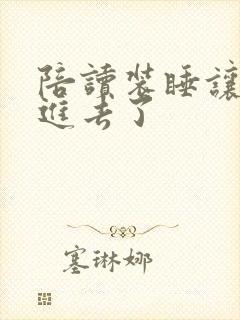 陪讀裝睡讓
進去了
塞琳娜